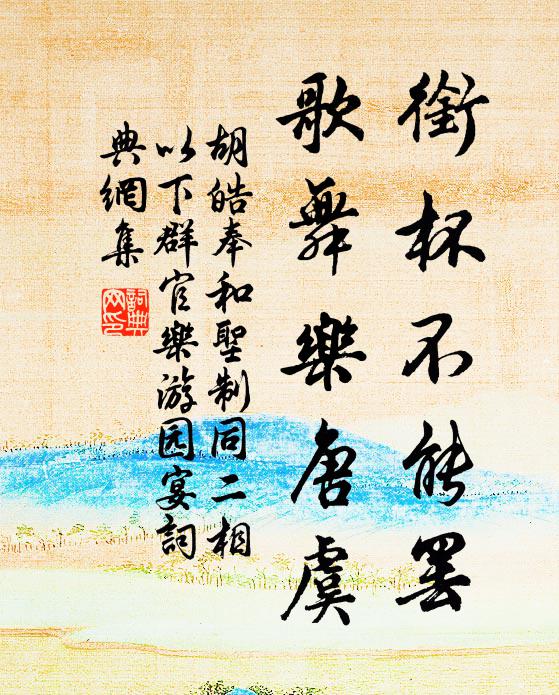 銜杯不能罷
歌舞樂唐虞
胡皓奉和聖制同二相
以下群官樂游园宴詞
典網集
詞典
网印